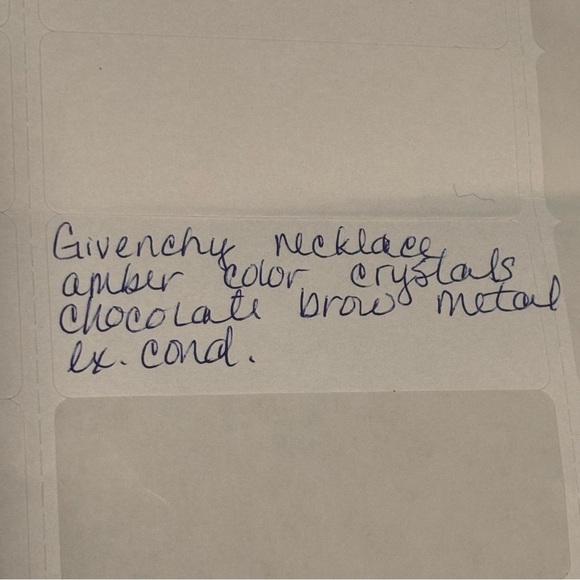 Givenchy necklace
amber color crystals
chocolate brow metal
ex. cond.